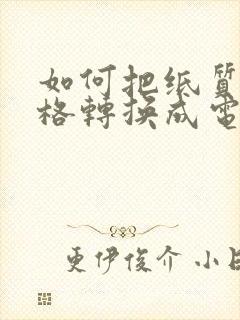 如何把纸質
格轉換成電
更伊俊介 小日